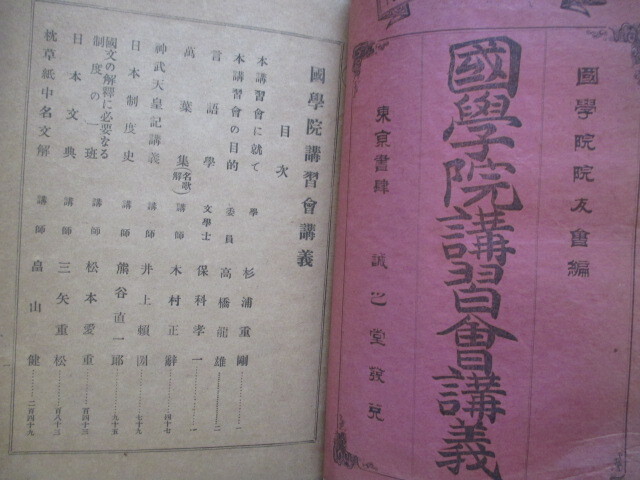 國學院院友會編
國學院講習會講義
東京書肆 誠之堂發兌
國學院講習會講義
目次
本講習會に就て 學 杉浦重剛………一
本講習會の目的 委員 高橋龍雄………二
言語學 文學士 保科孝一………一
萬葉集(名歌解) 講師 木村正辭………四十七
神武天皇記講義 講師 井上賴圀………七十九
日本制度史 講師 熊谷直一郎………九十五
國文の解釋に必要なる制度の一班 講師 松本愛重………百四十三
日本文典 講師 三矢重松………百八十三
枕草紙中名文解 講師 畠山健………二百四十九